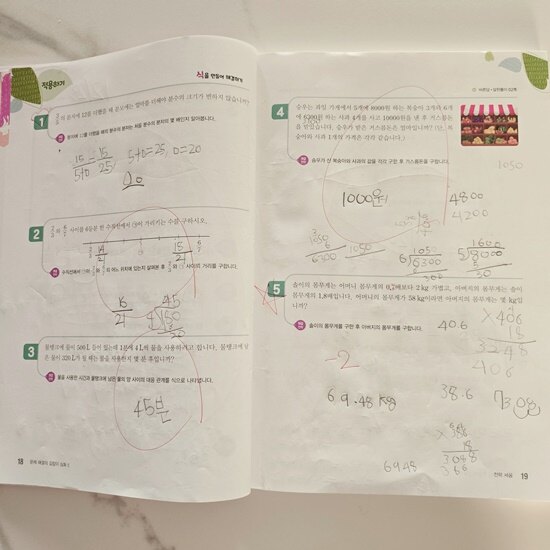 적용하기
식을 만들어 해결하기
1
의 분자에 12를 더했을 때 분모에는 얼마를 더해야 분수의 크기가 변하지 않습니까?
분자에 12를 더했을 때의 분수의 분자는 처음 분수의 분자의 몇 배인지 알아봅니다.
15/5+□ = 15/25, 5+□=25, □=20
20
2
2/3와 6/7 사이를 6등분 한 수직선에서 ㉠이 가리키는 수를 구하시오.
2/3 14/21 18/21 6/7
수직선에서 ㉠은
사이의 거리를 구합니다.
16/21
45
3
물탱크에 물이 500 L 들어 있는데 1분에 4 L씩 물을 사용하려고 합니다. 물탱크에 남
은 물이 320 L가 될 때는 물을 사용한지 몇 분 후입니까?
물을 사용한 시간과 물탱크에 남은 물의 양 사이의 대응 관계를 식으로 나타냅니다.
45분
18 문제 해결의 길잡이 심화
바른답 • 알찬풀이 02쪽
4
승우는 과일 가게에서 5개에 8000원 하는 복숭아 3개와 6개
에 6300원 하는 사과 4개를 사고 10000원을 낸 후 거스름돈
을 받았습니다. 승우가 받은 거스름돈은 얼마입니까? (단, 복
숭아와 사과 1개의 가격은 각각 같습니다.)
1050
승우가 산 복숭아와 사과의 값을 각각 구한 후 거스름돈을 구합니다.
1000원
4800
4200
1050
6300
1050
1050
6 6300
300
1600
5 8000
30
5
솔이의 몸무게는 어머니 몸무게의 0.7배보다 2 kg 가볍고, 아버지의 몸무게는 솔이
몸무게의 1.8배입니다. 어머니의 몸무게가 58 kg이라면 아버지의 몸무게는 몇 kg입
니까?
솔이의 몸무게를 구한 후 아버지의 몸무게를 구합니다.
40.6
×406
8
3248
406
-2
69.48kg
38.6
73.08
×386
18
3088
386
6948
전략 세움 19